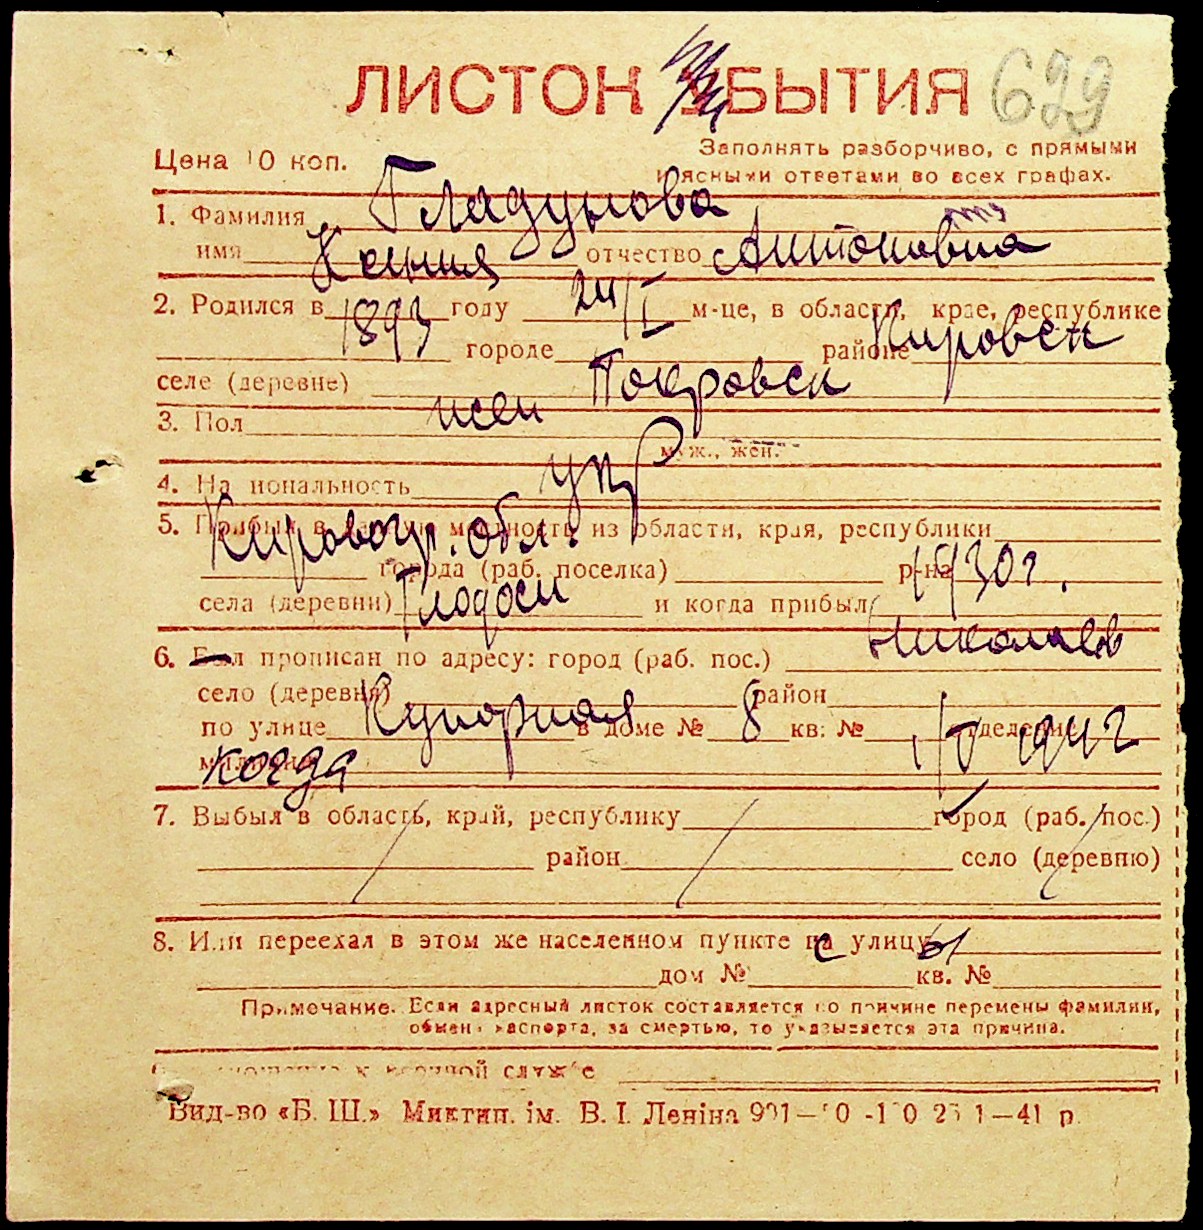 ЛИСТОК УБЫТИЯ 629
Цена 10 коп.
Заполнять разборчиво, с прямыми
и ясными ответами во всех графах.
1. Фамилия Гладунова
имя Ксения отчество Антоновна
2. Родился в 1893 году 24/I м-це, в области, крае, республике
городе районе Кировск
селе (деревне) Покровск
3. Пол жен
муж., жен.
4. Национальность укр
5. Прибыл в данную местность из области, края, республики
Кировогр. обл.
города (раб. поселка) р-на 1930 г.
села (деревни) Глодоси и когда прибыл
6. Был прописан по адресу: город (раб. пос.) Николаев
село (деревня) район
по улице Купорная в доме № 8 кв. № отделение
милиции когда 1942
7. Выбыл в область, край, республику город (раб. пос.)
район село (деревню)
8. Или переехал в этом же населенном пункте с улицы
дом № кв. №
Примечание. Если адресный листок составляется по причине перемены фамилии,
обмена паспорта, за смертью, то указывается эта причина.
к военной службе
Вид-во «Б. Ш.» Миктип. ім. В. І. Леніна